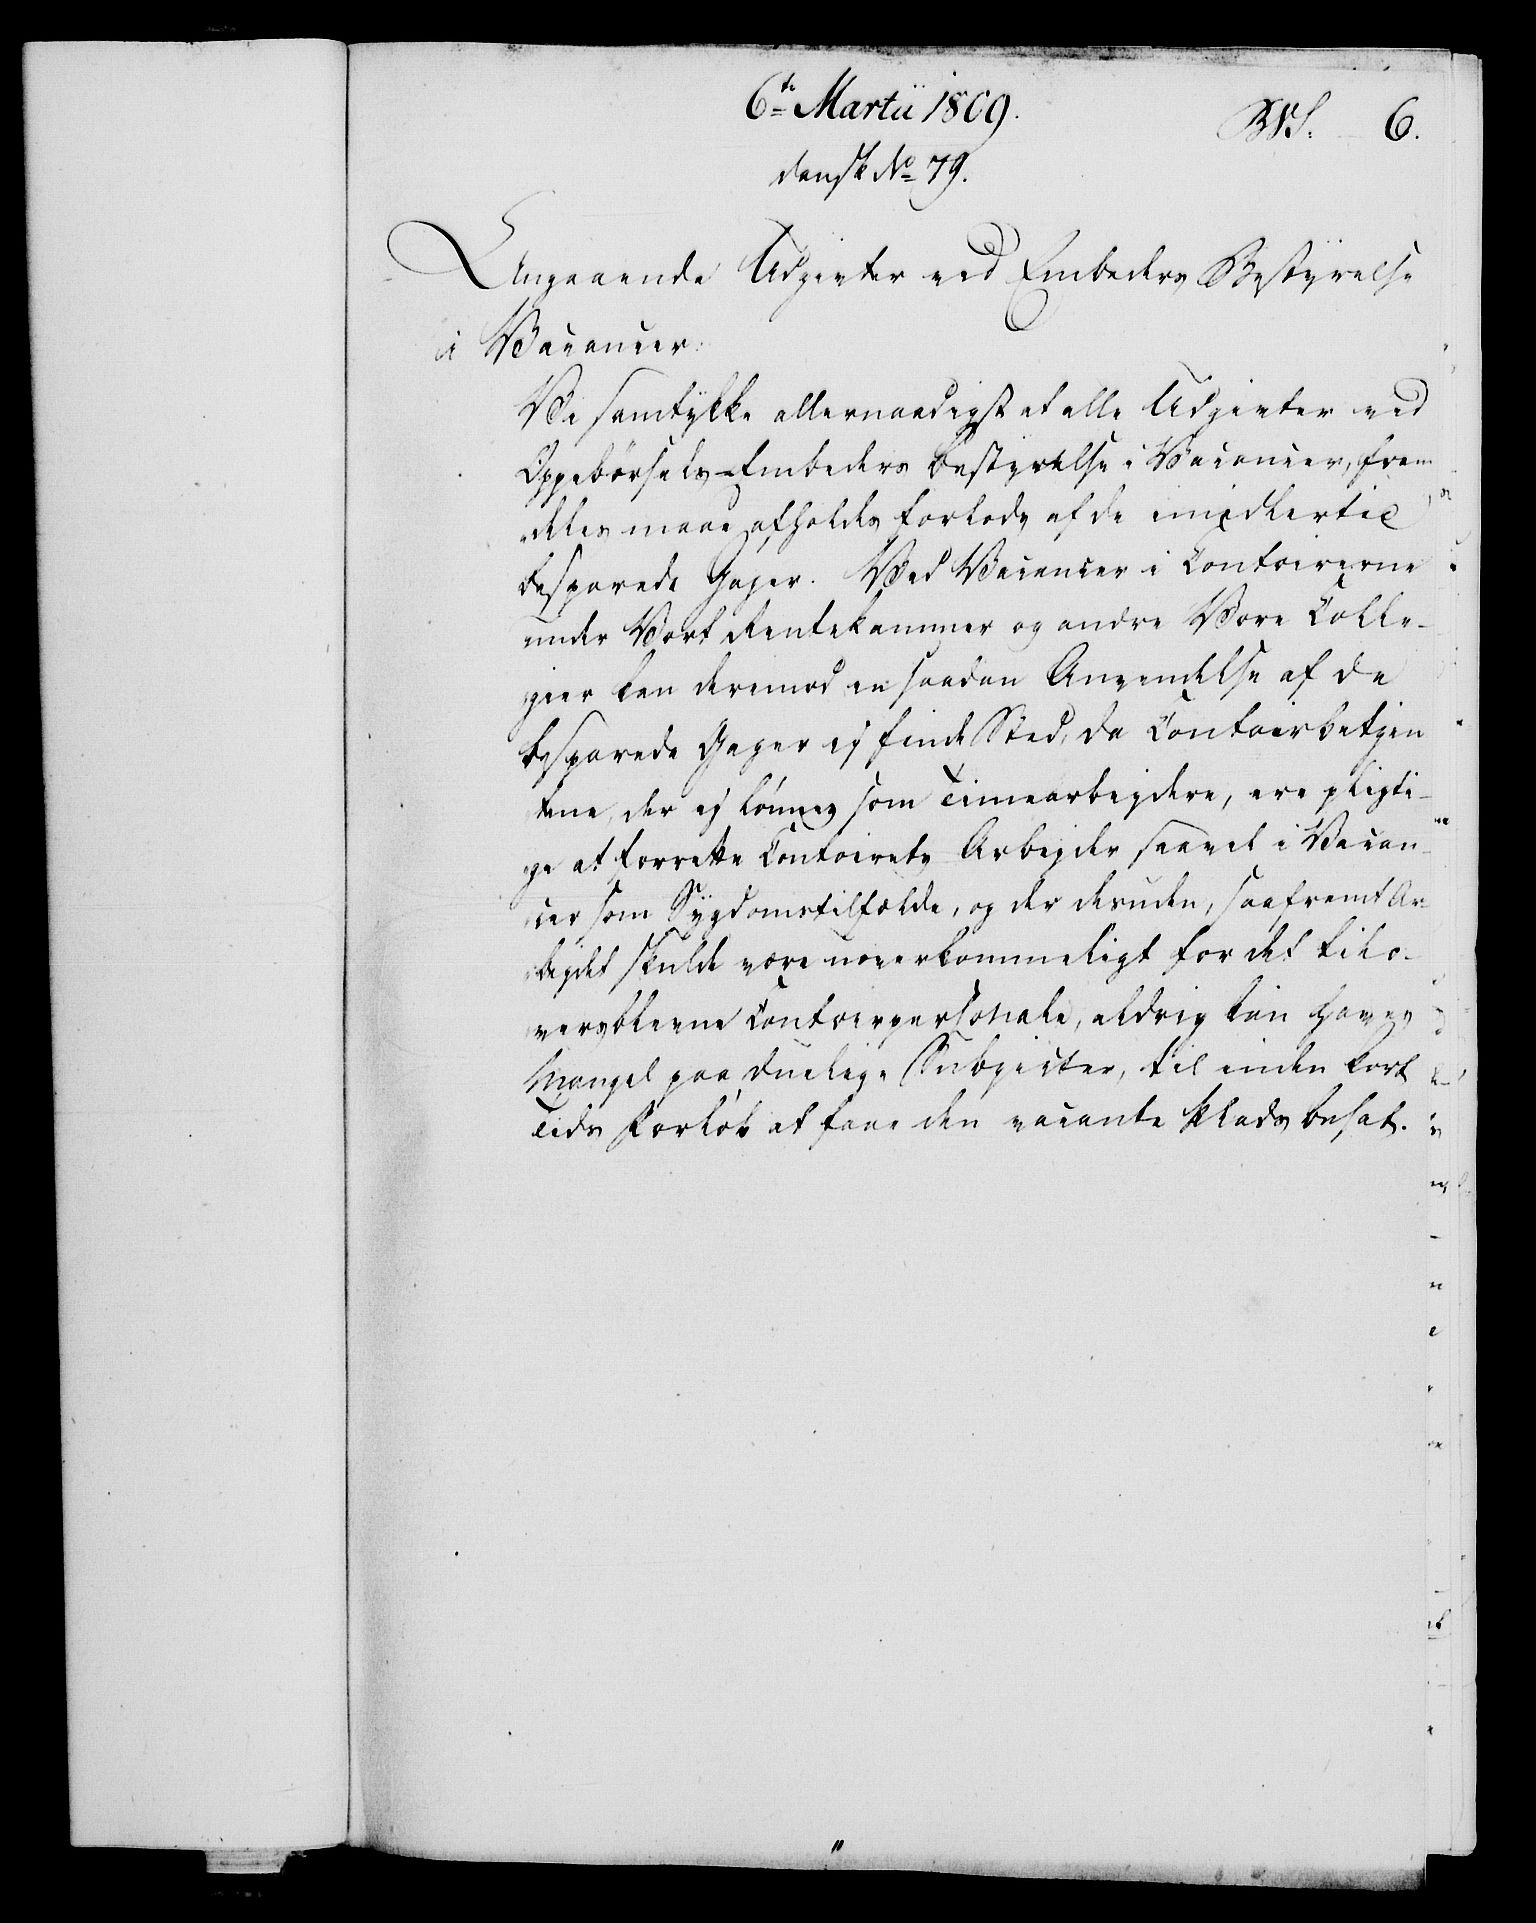 6te Martii 1809.
6.
dansk No 79.
Angaaende Udgivter ved Embeders Bestyrelse
i Vacancer:
Vi samtykke allernaadigst at alle Udgivter ved
Oppebörsels-Embeders bestyrelse i Vacancer, frem
deles maae afholdes forlods af de imidlertid
besparede Gager. Ved Vacancer i Contoirerne
under Vort Rentekammer og andre Vore Colle-
gier kan derimod en saadan Anvendelse af de
besparede Gager ej finde Sted, da Contoirbetjen
tene, der ej lönnes som Timearbejdere, ere pligti-
ge at forrette Contoirets Arbejder saavel i Vacan-
cer som Sygdomstilfælde, og der desuden, saafremt Ar-
bejdet skulde være uoverkommeligt for det tilo-
versblevne Contoirpersonale, aldrig kan haves
Mangel paa duelige Subjecter, til inden kort
Tids Forlöb at faae den vacante Plads besat.